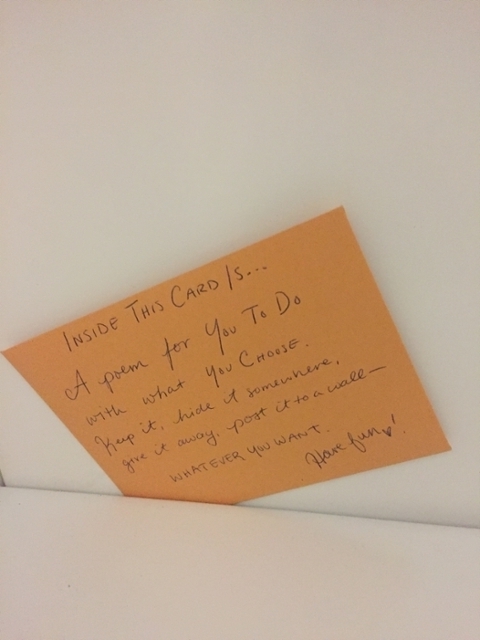 INSIDE THIS CARD IS...
A poem for You To Do
with what you CHOOSE.
Keep it, hide it somewhere,
give it away, post it to a wall—
WHATEVER YOU WANT.
Have fun!